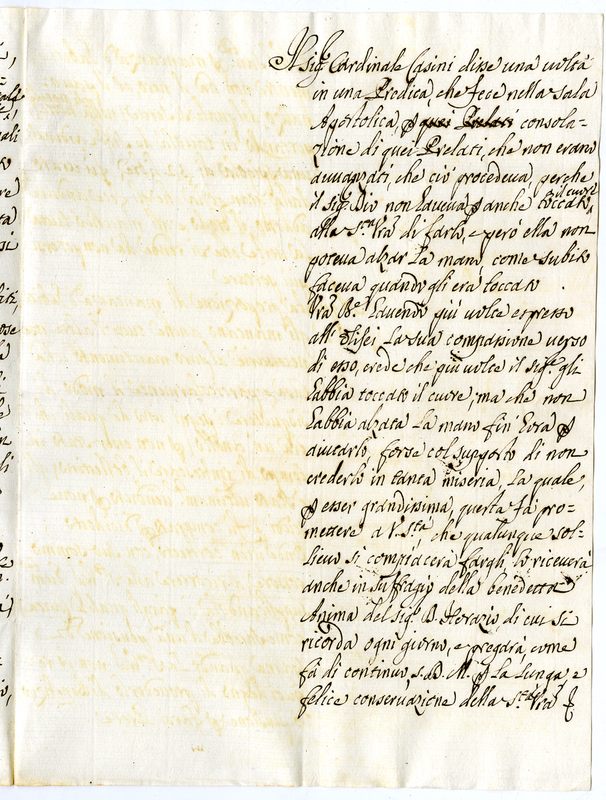 Il Sig.r Cardinale Casini disse una volta
in una Predica, che fece nella Sala
Apostolica, p quei Prelati consola-
zione di quei Prelati, che non erano
avanzati, che ciò procedeva, perche
il Sig. Dio non haveva p anche toccato, il cuore
alla S.tà V.ra di farlo, e però ella non
poteva alzar la mano, come subito
faceva quando gli era toccato.
V.ra B.e havendo più volte espresso
all' Olisei la sua compassione verso
di esso, crede che più volte il Sig.e gli
habbia toccato il cuore, ma che non
habbia alzata la mano fin' hora p
aiutarlo, forse col supposto di non
crederlo in tanta miseria, la quale,
p esser grandissima, questa fà pro-
mettere a V. S.tà, che qualunque sol-
lievo si compiacerà fargli, lo riceverà
anche in suffragio della benedetta
Anima del Sig.e D. Horazio, di cui si
ricorda ogni giorno, e pregarà come
fà di continuo, S. D. M. p la lunga, e
felice conservazione della S.tà V.ra